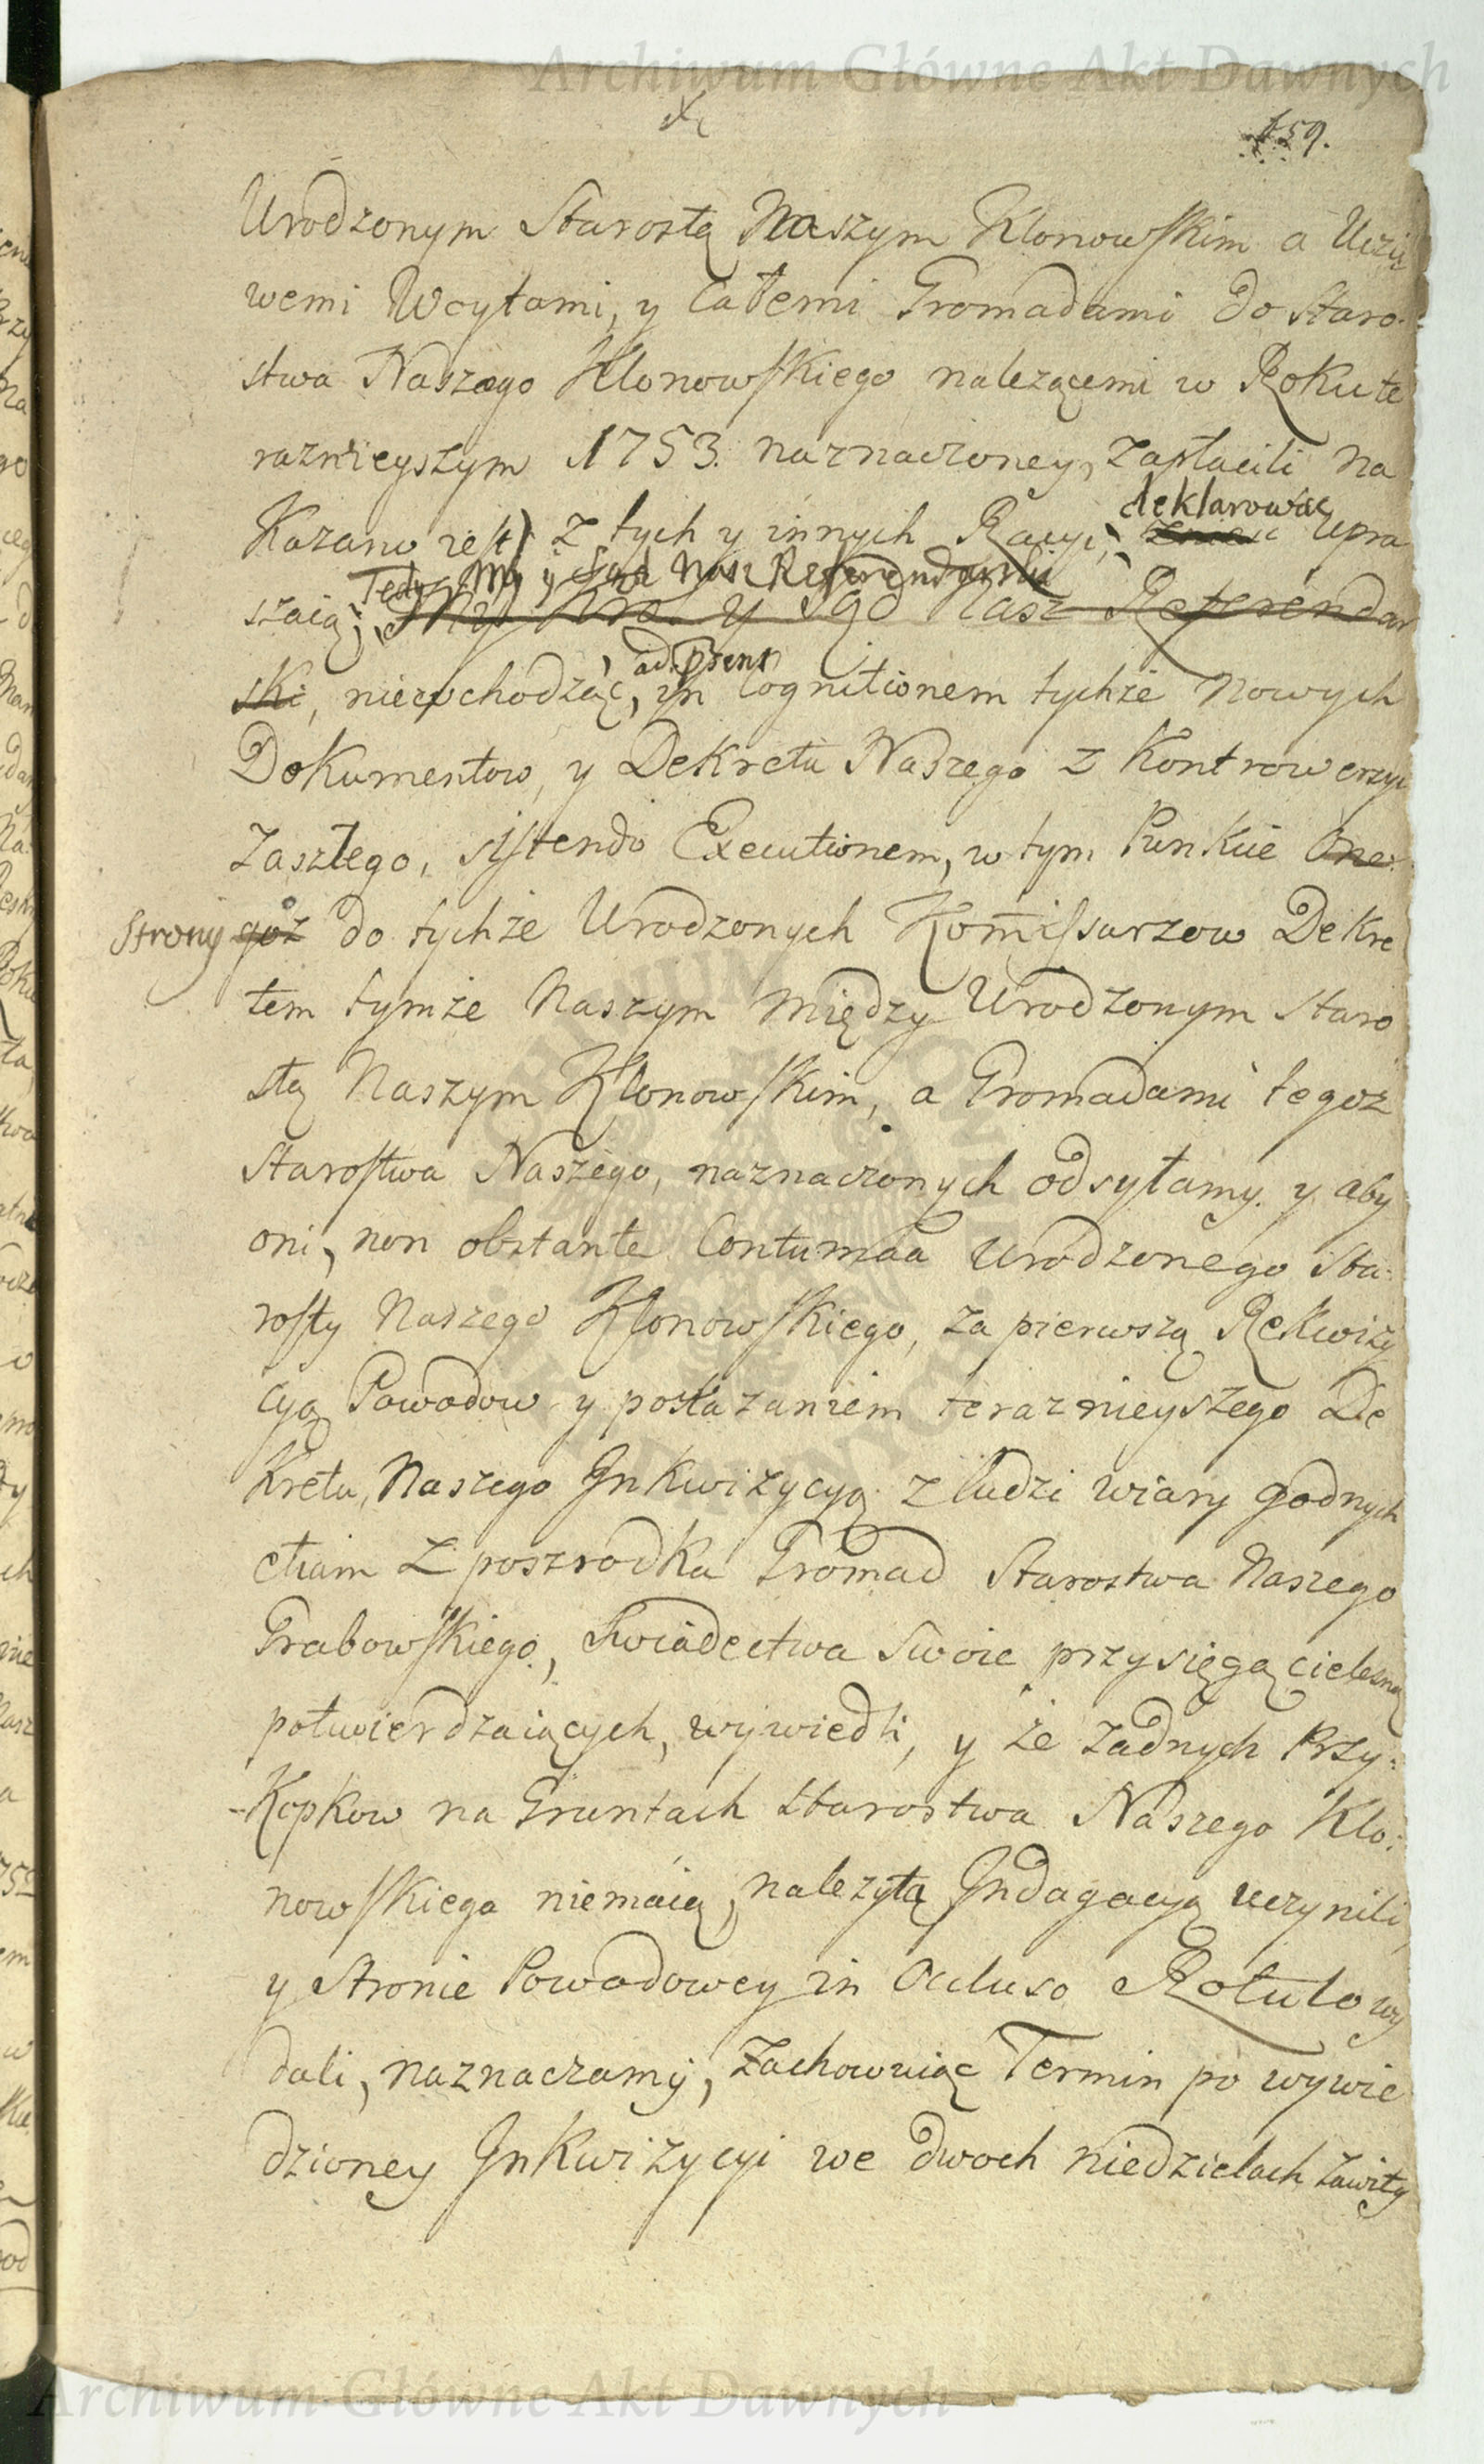 Archiwum Główne Akt Dawnych
459.
Urodzonym Starostą Naszym Klonowskim a Uczci
wemi Woytami, y całemi Gromadami do Staro-
stwa Naszego Klonowskiego nalezącemi w Roku te
raznieyszym 1753. naznaczoney, zapłacili na
deklarować
Kazano iest) z tych y innych Racyi, upra
Tedy My y Sąd Nasz Referendarski
szaią; My Kro. y Sąd Nasz Referendar
ad psens
ski, niewchodząc, in Cognitionem tychże nowych
Dokumentow, y Dekretu Naszego z Kontrowersyi
Zaszłego, sistendo Executionem, w tym Punkcie One-
Strony goż do tychże Urodzonych Kommissarzow Dekre
tem tymże Naszym między Urodzonym Staro
stą Naszym Klonowskim, a Gromadami tegoz
Starostwa Naszego, naznaczonych odsyłamy. y aby
oni, non obstante Contumacia Urodzonego Sta-
rosty Naszego Klonowskiego, za pierwszą Rekwizy
cyą Powodow y pokazaniem teraznieyszego De
Kretu, Naszego Inkwizycyą z ludzi wiary godnych
etiam z poszrodka Gromad Starostwa Naszego
Grabowskiego, Swiadectwa Swoie przysięgą cielesną
potwierdzaiących, wywiedli, y że żadnych Przy-
-Kopkow na Gruntach Starostwa Naszego Klo-
nowskiego niemaią, nalezytą Indagacyą uczynili,
y Stronie Powodowey in Ocluso Rotulo wy
dali, naznaczamy, zachowuiąc Termin po wywie
dzioney Inkwizycyi we dwoch niedzielach zawity
Archiwum Główne Akt Dawnych